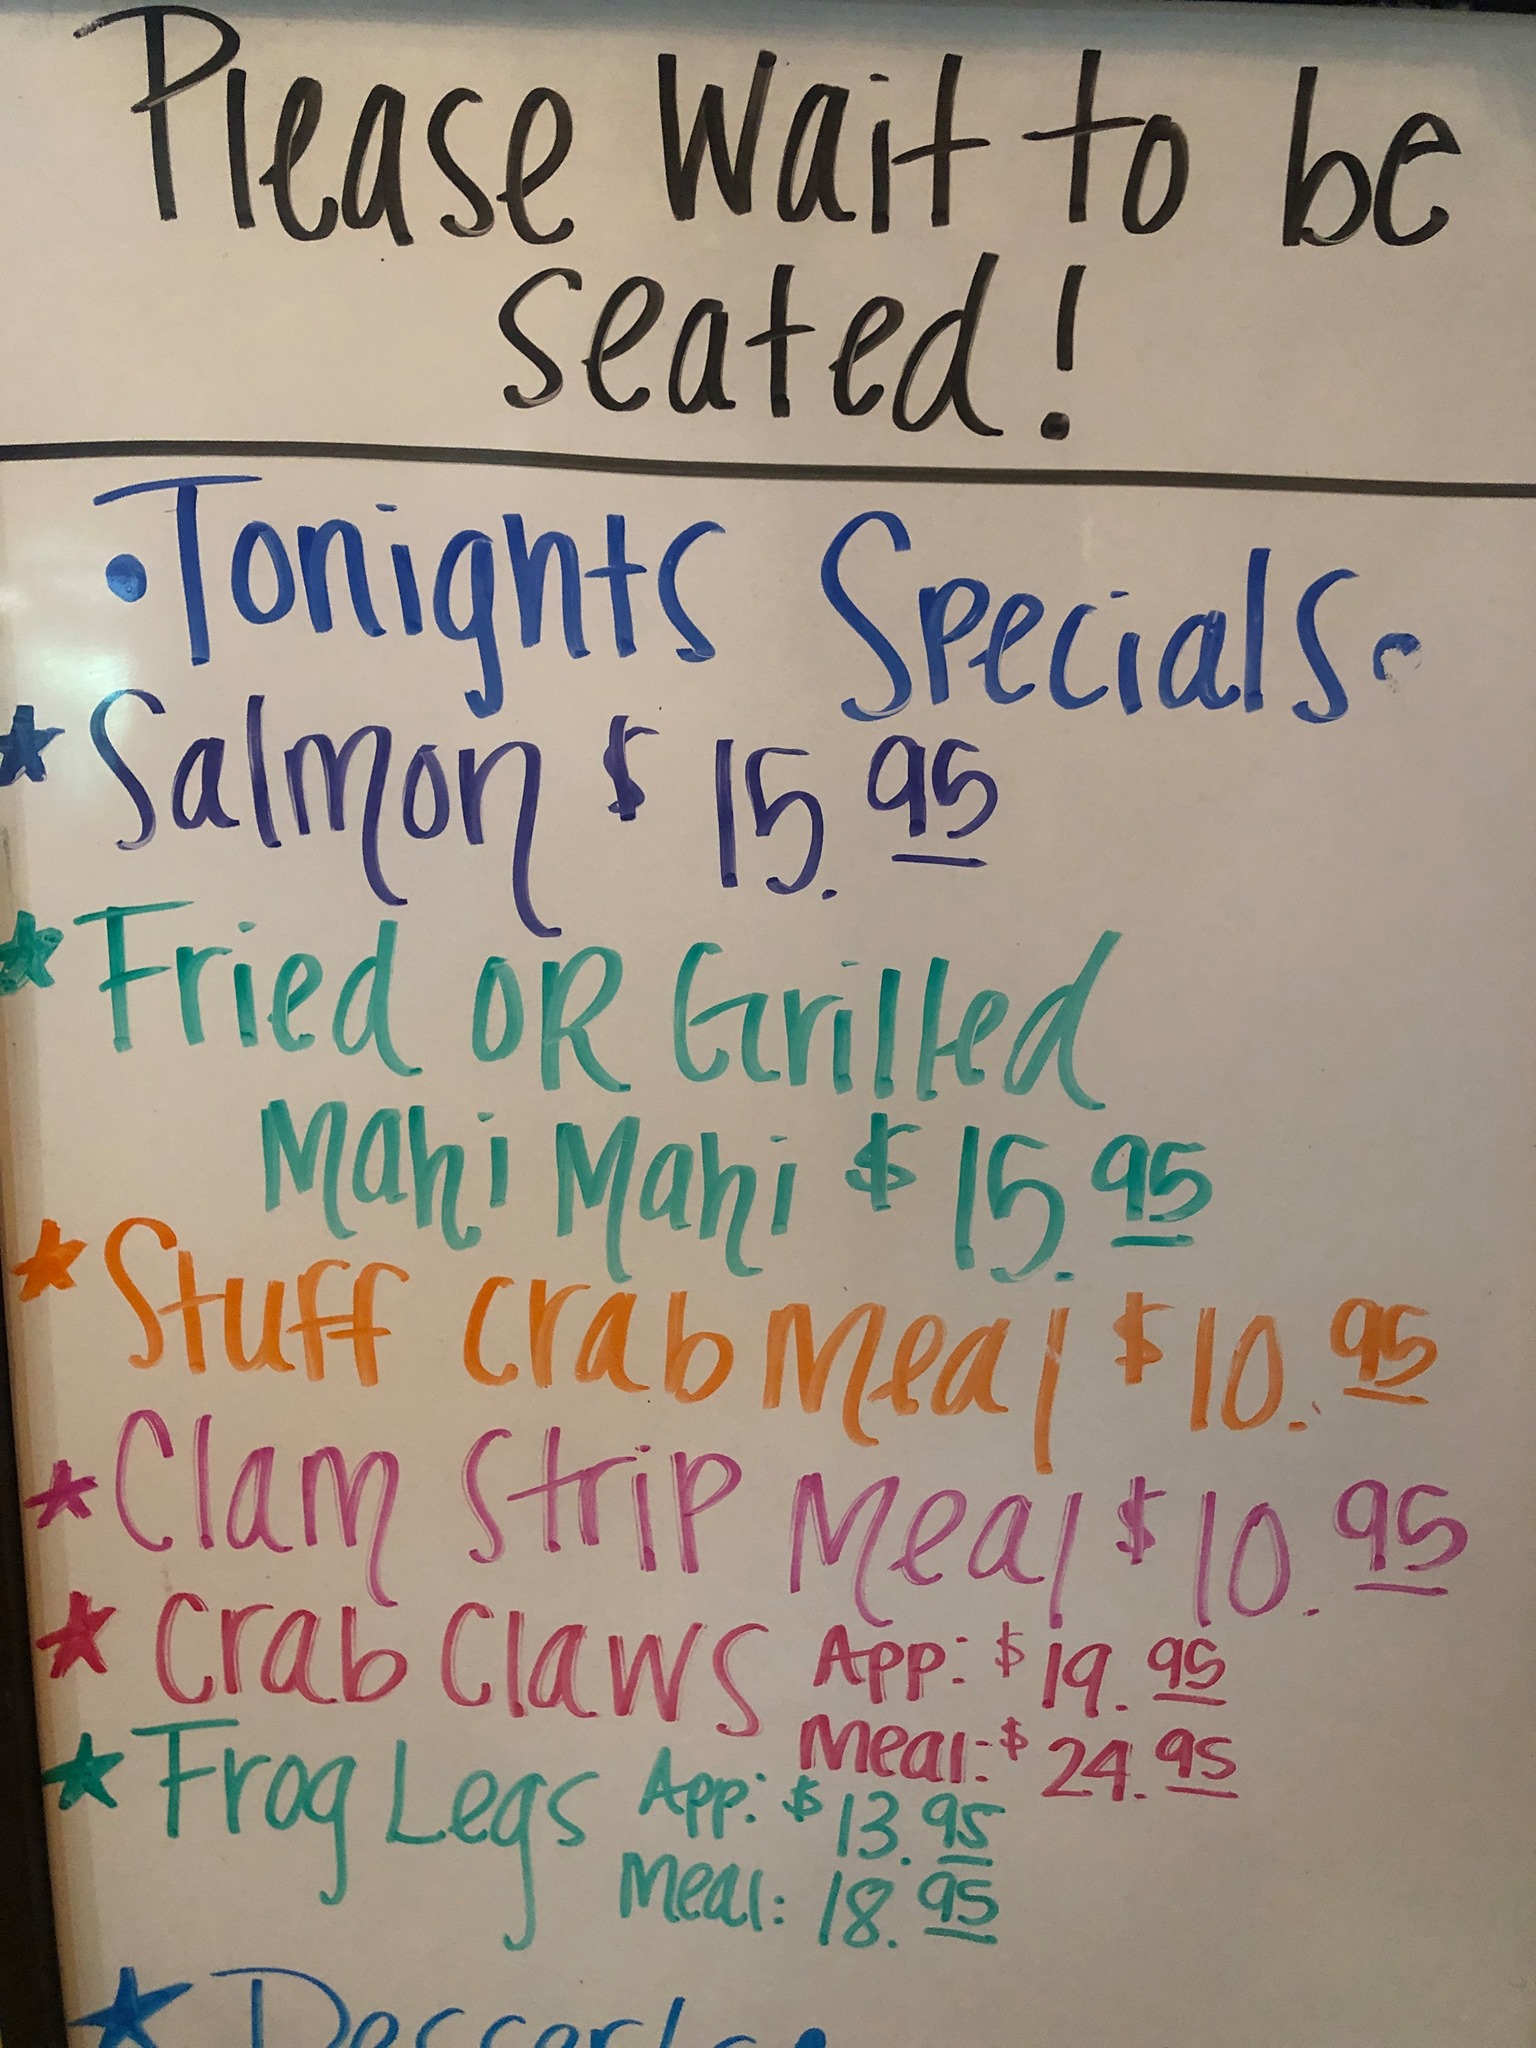 Please Wait to be
seated!
•Tonights Specials•
★ Salmon $15.95
★ Fried OR Grilled
Mahi Mahi $15.95
★ Stuff Crab Meal $10.95
★ Clam Strip Meal $10.95
★ Crab Claws App: $19.95
Meal: $24.95
★ Frog Legs App: $13.95
Meal: 18.95
★ Desserts•